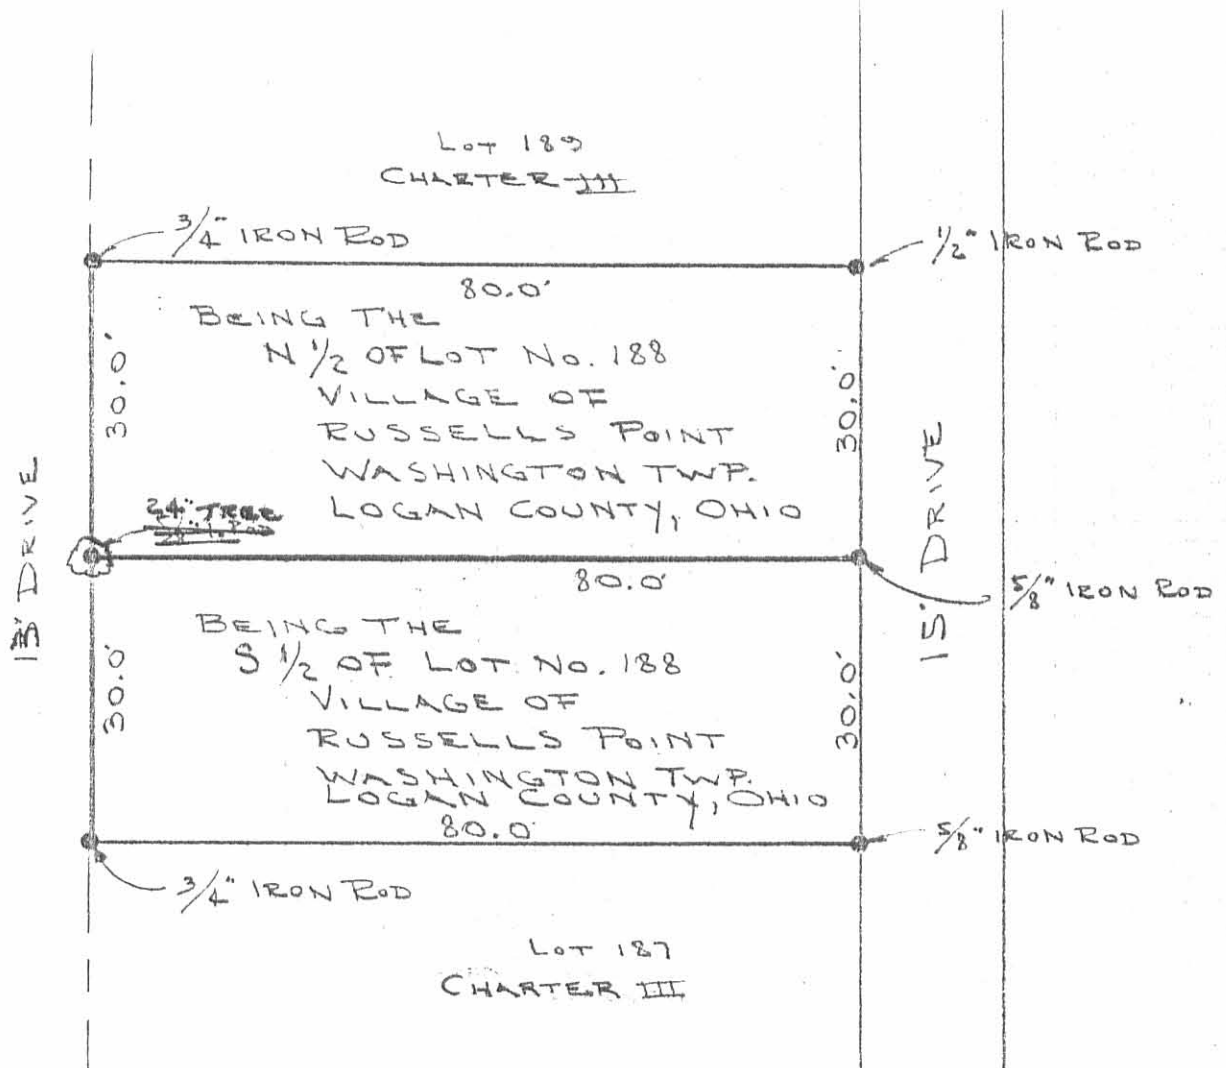 Lot 189
CHARTER III
3/4" IRON ROD
1/2" IRON ROD
80.0'
BEING THE
N 1/2 OF LOT No. 188
VILLAGE OF
RUSSELLS POINT
WASHINGTON TWP.
LOGAN COUNTY, OHIO
30.0'
30.0'
DRIVE
15' DRIVE
24" TREE
80.0'
5/8" IRON ROD
BEING THE
S 1/2 OF LOT No. 188
VILLAGE OF
RUSSELLS POINT
WASHINGTON TWP.
LOGAN COUNTY, OHIO
30.0'
30.0'
80.0'
5/8" IRON ROD
3/4" IRON ROD
Lot 187
CHARTER III